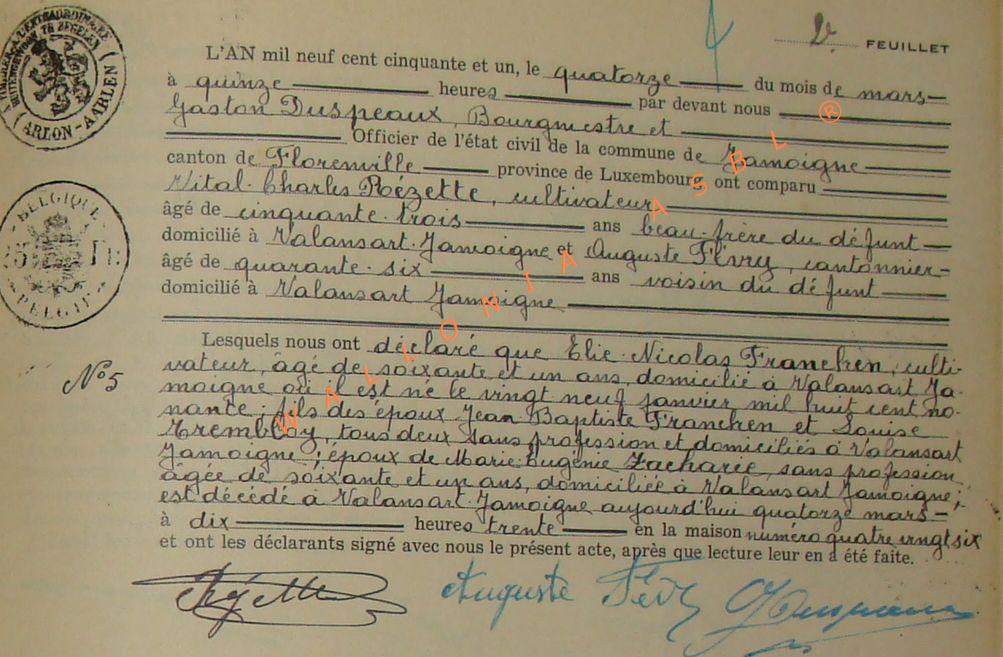 2e FEUILLET
L'AN mil neuf cent cinquante et un, le quatorze du mois de mars
à quinze heures par devant nous
Gaston Duspeaux, Bourgmestre et
Officier de l'état civil de la commune de Jamoigne
canton de Florenville province de Luxembourg ont comparu
Vital-Charles Rézette, cultivateur
âgé de cinquante-trois ans beau-frère du défunt
domicilié à Valansart-Jamoigne et Auguste Févry, cantonnier
âgé de quarante-six ans voisin du défunt
domicilié à Valansart Jamoigne
Lesquels nous ont déclaré que Elie-Nicolas Franchen, culti-
vateur, âgé de soixante et un ans, domicilié à Valansart Ja-
moigne où il est né le vingt neuf janvier mil huit cent no-
nante; fils des époux Jean-Baptiste Franchen et Louise
Trembloy, tous deux sans profession et domiciliés à Valansart
Jamoigne; époux de Marie-Eugénie Zacharée, sans profession
âgée de soixante et un ans, domiciliée à Valansart Jamoigne;
est décédé à Valansart-Jamoigne aujourd'hui quatorze mars
à dix heures trente en la maison numéro quatre vingt six
et ont les déclarants signé avec nous le présent acte, après que lecture leur en a été faite.
N° 5
Auguste Févry
ARLON-AARLEN
BELGIQUE
BELGIE
WALLONIA ASBL ®